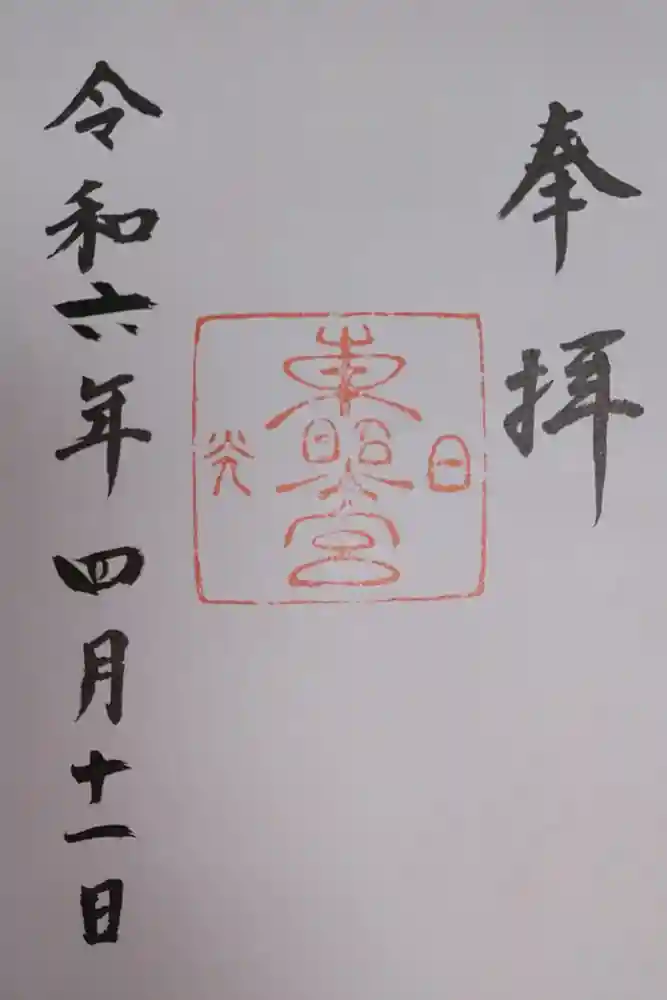 奉拝
日
東照宮
光
令和六年四月十一日